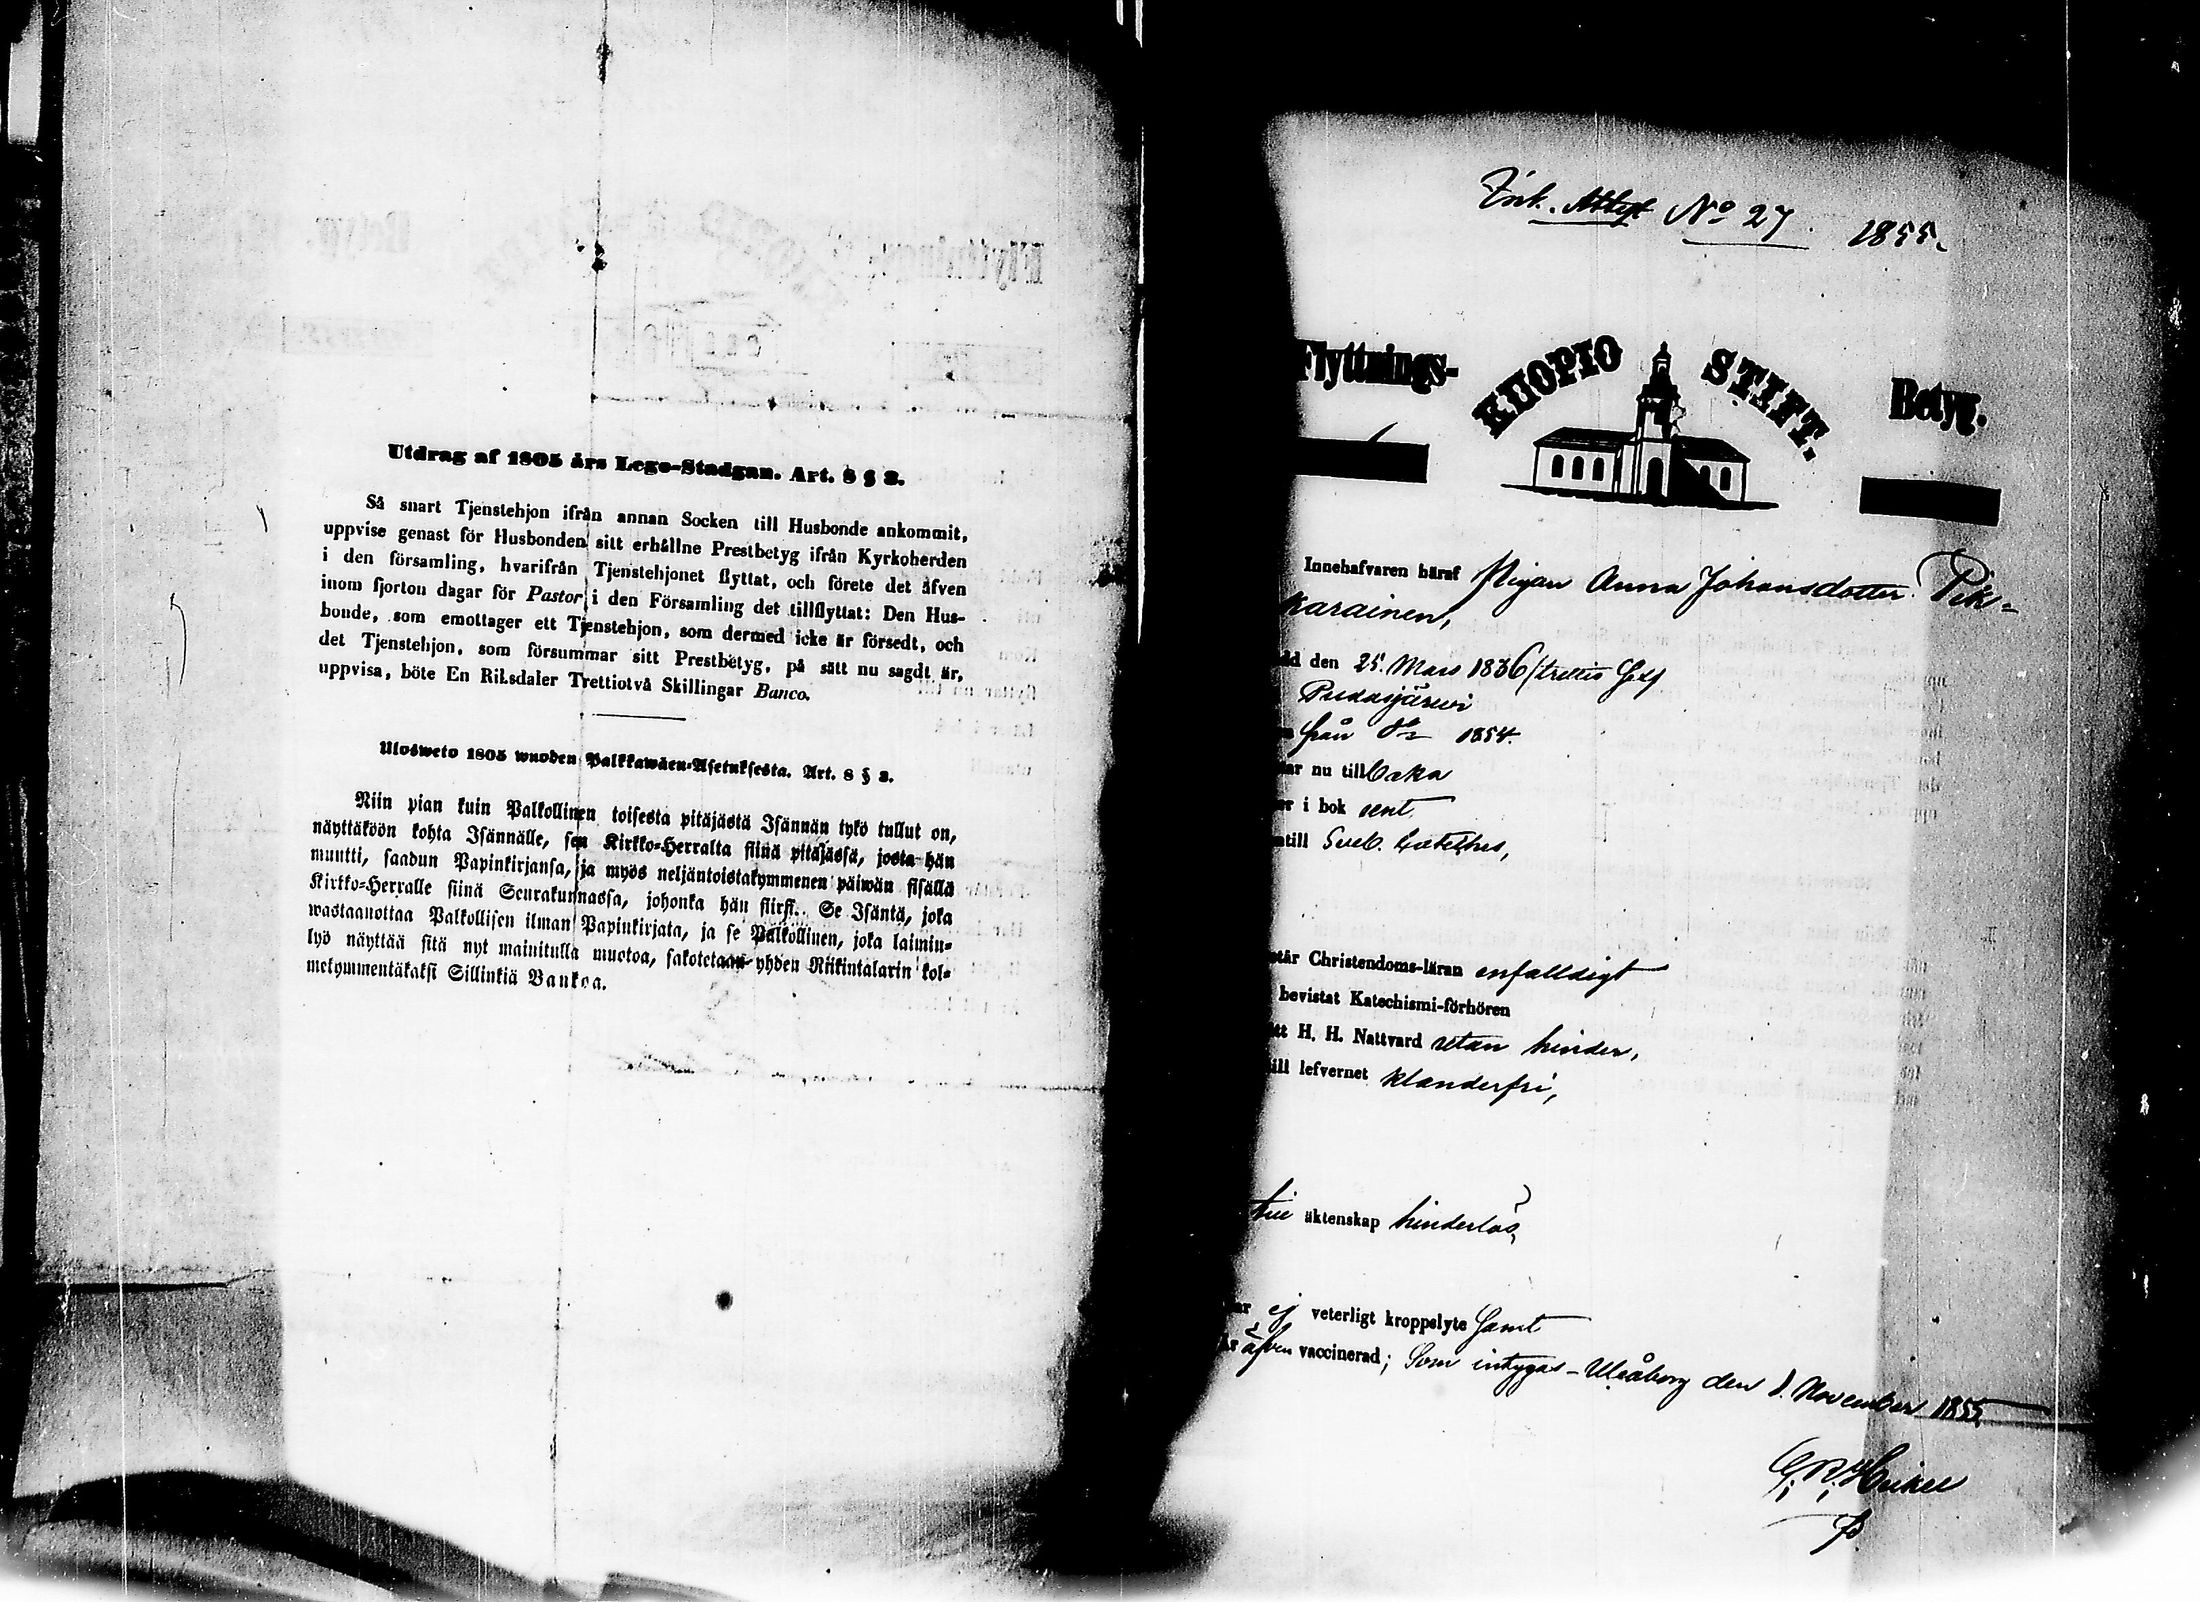 Utdrag af 1805 års Lego-Stadgan. Art. 8 § 3.
Så snart Tjenstehjon ifrån annan Socken till Husbonde ankommit,
uppvise genast för Husbonden sitt erhållne Prestbetyg ifrån Kyrkoherden
i den församling, hvarifrån Tjenstehjonet flyttat, och förete det äfven
inom fjorton dagar för Pastor i den Församling det tillflyttat: Den Hus-
bonde, som emottager ett Tjenstehjon, som dermed icke är försedt, och
det Tjenstehjon, som försummar sitt Prestbetyg, på sätt nu sagdt är,
uppvisa, böte En Riksdaler Trettiotvå Skillingar Banco.
Ulosweto 1805 wuoden Palkkawäen-Asetuksesta. Art. 8 § 3.
Niin pian kuin Palkollinen toisesta pitäjästä Isännän tykö tullut on,
näyttäköön kohta Isännälle, sen Kirkko-Herralta siinä pitäjässä, josta hän
muutti, saadun Papinkirjansa, ja myös neljäntoistakymmenen päiwän sisällä
Kirkko-Herralle siinä Seurakunnassa, johonka hän siirsi. Se Isäntä, joka
wastaanottaa Palkollisen ilman Papinkirjata, ja se Palkollinen, joka laimin-
lyö näyttää sitä nyt mainitulla muotoa, sakotetaan yhden Riikintalarin kol-
mekymmentäkaksi Sillinkiä Bankoa.
No 27. 1855.
Flyttnings- KUOPIO STIFT. Betyg.
Innehafvaren häraf Pigan Anna Johansdotter Pik-
karainen,
den 25. Mars 1836
Pudasjärvi
från 1854.
nu till
i bok
till Sveb.
Christendoms-läran enfalldigt
bevistat Katechismi-förhören
H. H. Nattvard utan hinder,
lefvernet klanderfri,
till äktenskap hinderlös,
ej veterligt kroppslyte samt
äfven vaccinerad; Som intygas - Uleåborg den 1. November 1855